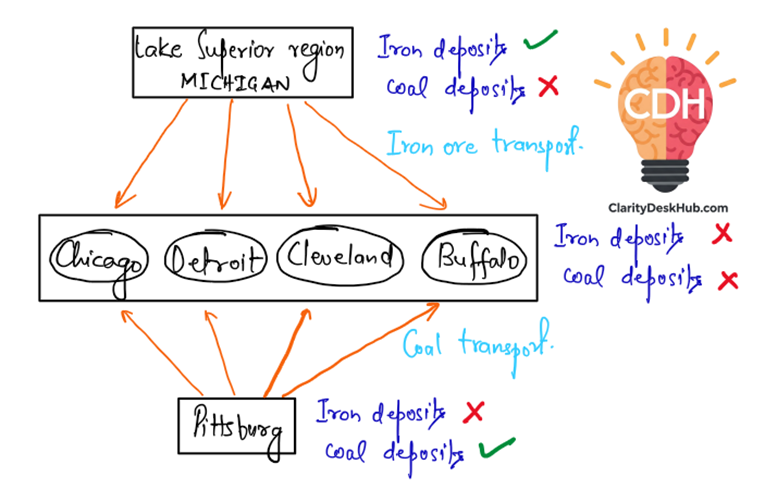 Lake Superior region
MICHIGAN
Iron deposits
coal deposits
Iron ore transport.
CDH
ClarityDeskHub.com
Chicago
Detroit
Cleveland
Buffalo
Iron deposits
coal deposits
Coal transport.
Pittsburg
Iron deposits
coal deposits